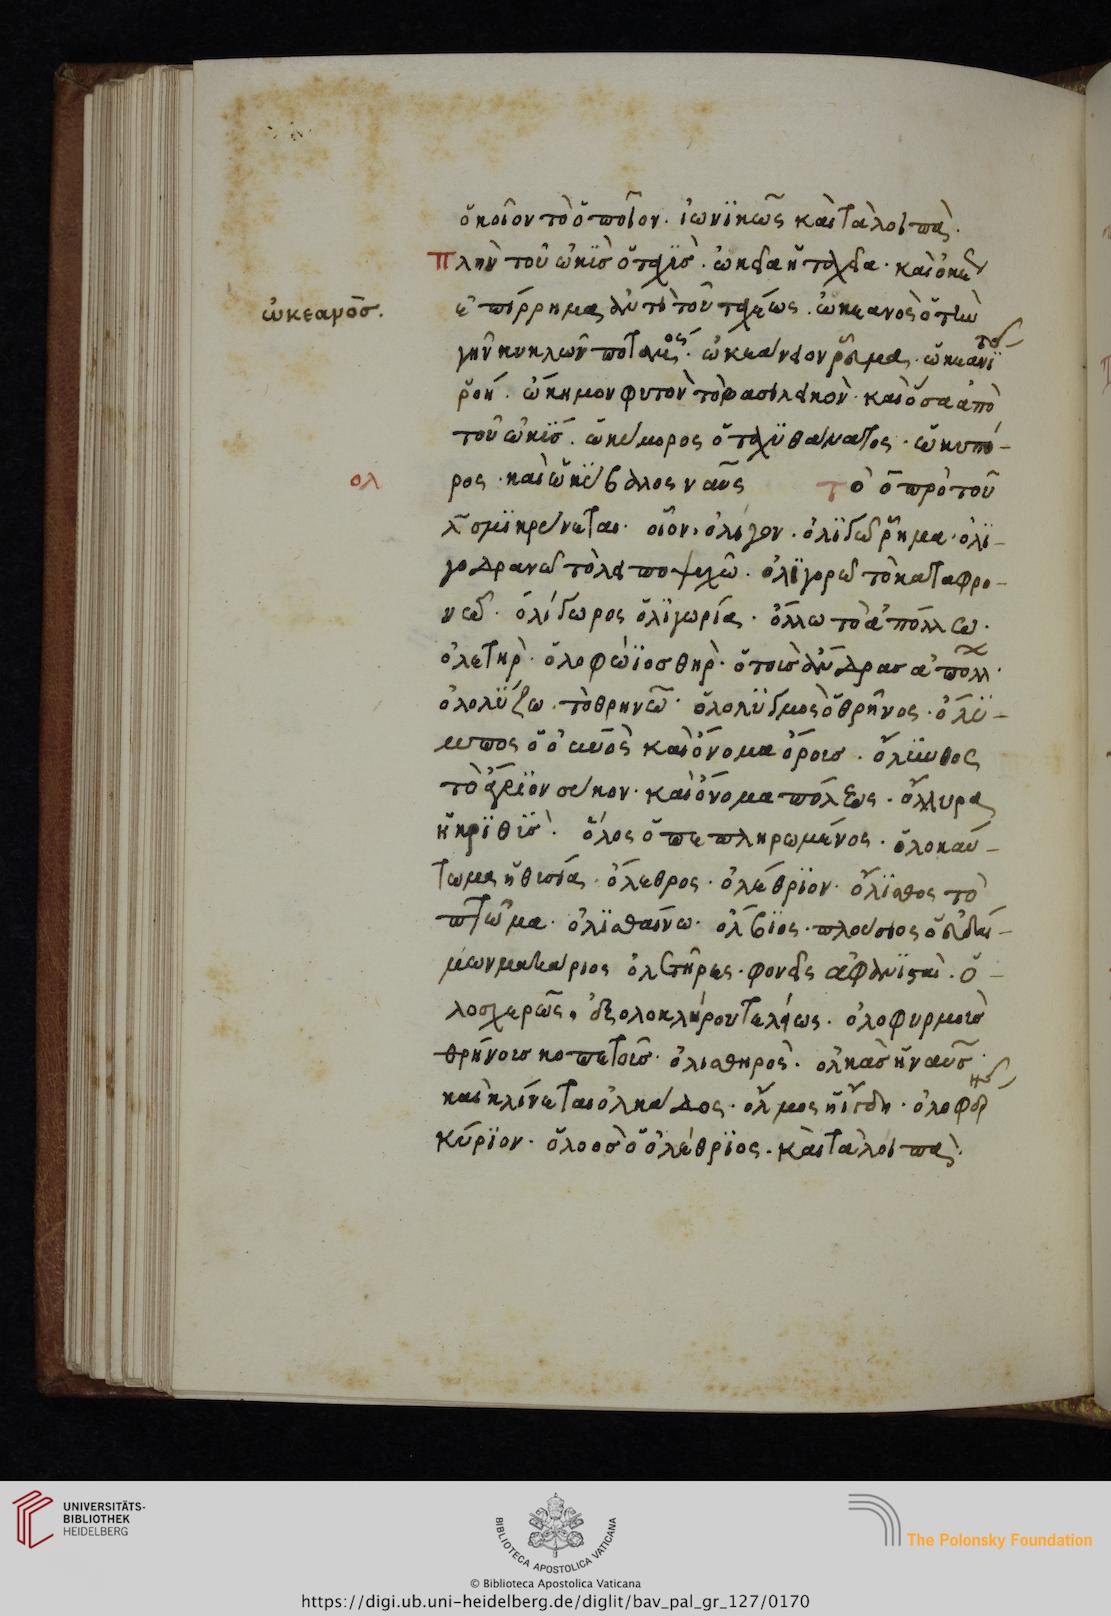 ὁκοῖον τὸ ὁποῖον. ἰωνϊκῶς καὶ τὰ λοιπά.
Πλὴν τοῦ ὠκῢς ὁ ταχῢς. ὠκεῖα ἡ ταχεῖα. καὶ
ἐπίρρημα ἀντὶ τοῦ ταχέως. ὠκεανὸς ὁ τὴν
ὠκεανός.
γῆν κυκλῶν ποταμός. ὠκεάνειον ῥεῦμα.
ῥοή. ὤκημον φυτὸν τὸ βασιλικὸν. καὶ ὅσα ἀπὸ
τοῦ ὠκῢς. ὠκύμορος ὁ ταχϋθάνατος. ὠκυπό-
ρος. καὶ ὠκϋβαλος ναῦς τὸ ο πρὸ τοῦ
ολ
λ σμϊκρύνεται. οἷον, ὀλίγον. ῥῆμα. ὀλϊ-
γοδρανῶ τὸ λειποψυχῶ. ὀλϊγορῶ τὸ καταφρο-
νῶ. ὀλίγωρος ὀλϊγωρία. ὄλλω τὸ ἀπολλω.
ὀλετὴρ. ὀλοφώϊος θὴρ. ὁ τοὺς ἄνδρας ἀπολλ.
ὀλολΰζω. τὸ θρηνῶ. ὀλολϋγμὸς ὁ θρῆνος. ὀλϋ-
μπος ὁ οὐνὸς καὶ ὄνομα ὄρους. ὄλϋνθος
τὸ ἄγρϊον σύκον. καὶ ὄνομα πόλεως. ὄλλυρα
ἡ κρϊθῒς. ὅλος ὁ πεπληρωμένος. ὁλοκαύ-
τωμα ἡ θυσία. ὄλεθρος. ὀλέθρϊον. ὄλϊσθος τὸ
πτῶμα. ὀλϊσθαίνω. ὄλβϊος. πλούσιος ὁ εὐδαί-
μων μακάριος φονεῖς ὁ-
λοσχερῶς. ἐξ ολοκλήρου τελείως. ὀλοφυρμοῖς
θρήνοις κοπετοῖς. ὀλισθηρὸς. ὁλκὰς ἡ ναῦς.
καὶ κλίνεται ὁλκάδος. ὅλμος ἡ ἴγδη.
κύρϊον. ὀλοὸς ὁ ὀλέθρϊος. καὶ τὰ λοιπά.
UNIVERSITÄTS-
BIBLIOTHEK
HEIDELBERG
BIBLIOTECA APOSTOLICA VATICANA
The Polonsky Foundation
© Biblioteca Apostolica Vaticana
https://digi.ub.uni-heidelberg.de/diglit/bav_pal_gr_127/0170